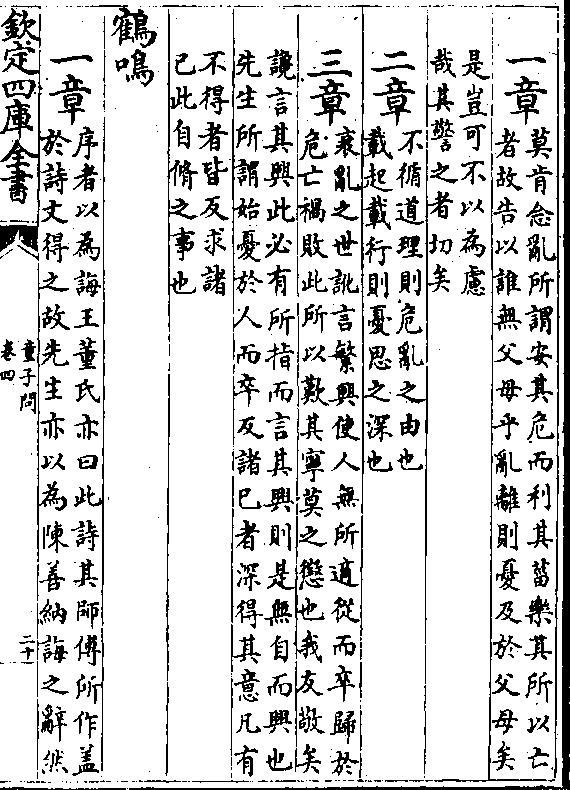 一章莫肯念亂所謂安其危而利其菑樂其所以亡
者故告以誰無父母乎亂離則憂及於父母矣
是豈可不以為慮
哉其警之者切矣
二章不循道理則危亂之由也
載起載行則憂思之深也
三章衰亂之世訛言繁興使人無所適從而卒歸於
危亡禍敗此所以歎其寧莫之懲也我友敬矣
讒言其興此必有所指而言其興則是無自而興也
先生所謂始憂於人而卒反諸己者深得其意凡有
不得者皆反求諸
己此自脩之事也
鶴鳴
一章序者以為誨王董氏亦曰此詩其師傅所作蓋
於詩文得之故先生亦以為陳善納誨之辭然
欽定四庫全書
童子問
卷四
二十